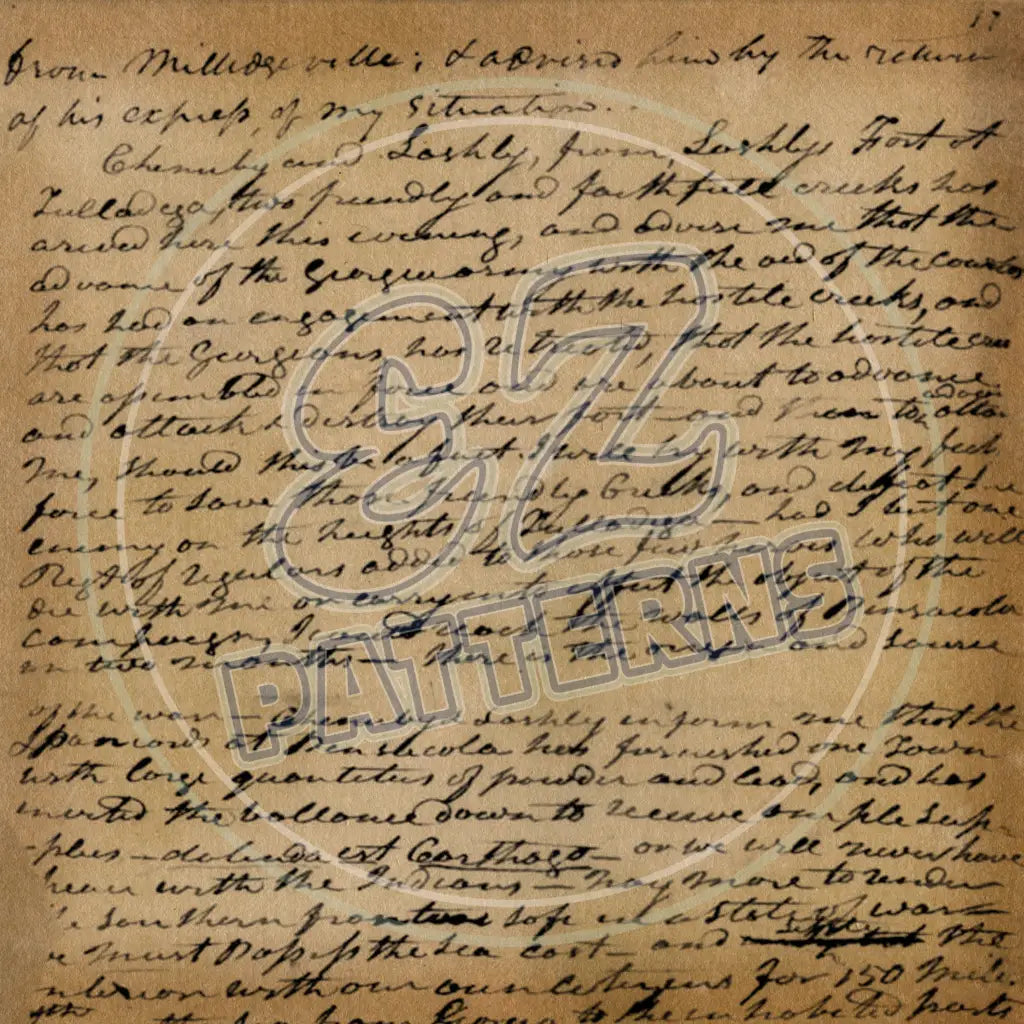 17
from Milledgeville; & advised him by the return
of his express, of my situation..
Chenuby and Lashly, from, Lashlys Fort at
Tulladega, two friendly and faithfull creeks has
arived here this evening, and advise me that the
advance of the Georgia army with the aid of the
has had an engagement with the hostile creeks, and
that the Georgians has retreated, that the hostile
are assembled in force and are about to advance
and attack & destroy their fort and then to
me, should this be a fact. I will by with my
force to save those friendly Creeks, and defeat the
enemy on the heights of Tulladega — had I but one
Regt of regulars added to those few heroes who will
die with me on carrying into effect the object of the
campaign, I would the walls of Pensacola
in two months — there is the origin and source
of the war — Chenuby & Lashly inform me that the
Spaniards at Penslecola has furnished one Town
with large quantities of powder and lead, and has
invited the ballance down to receive ample sup-
-plies — delenda est Carthago — or we will never have
peace with the Indians — nay more to render
southern frontier safe in a state of war
must Possess the sea cost — and the
with our own citizens for 150 mile
from Georgia to the inhabited parts
EZ
PATTERNS